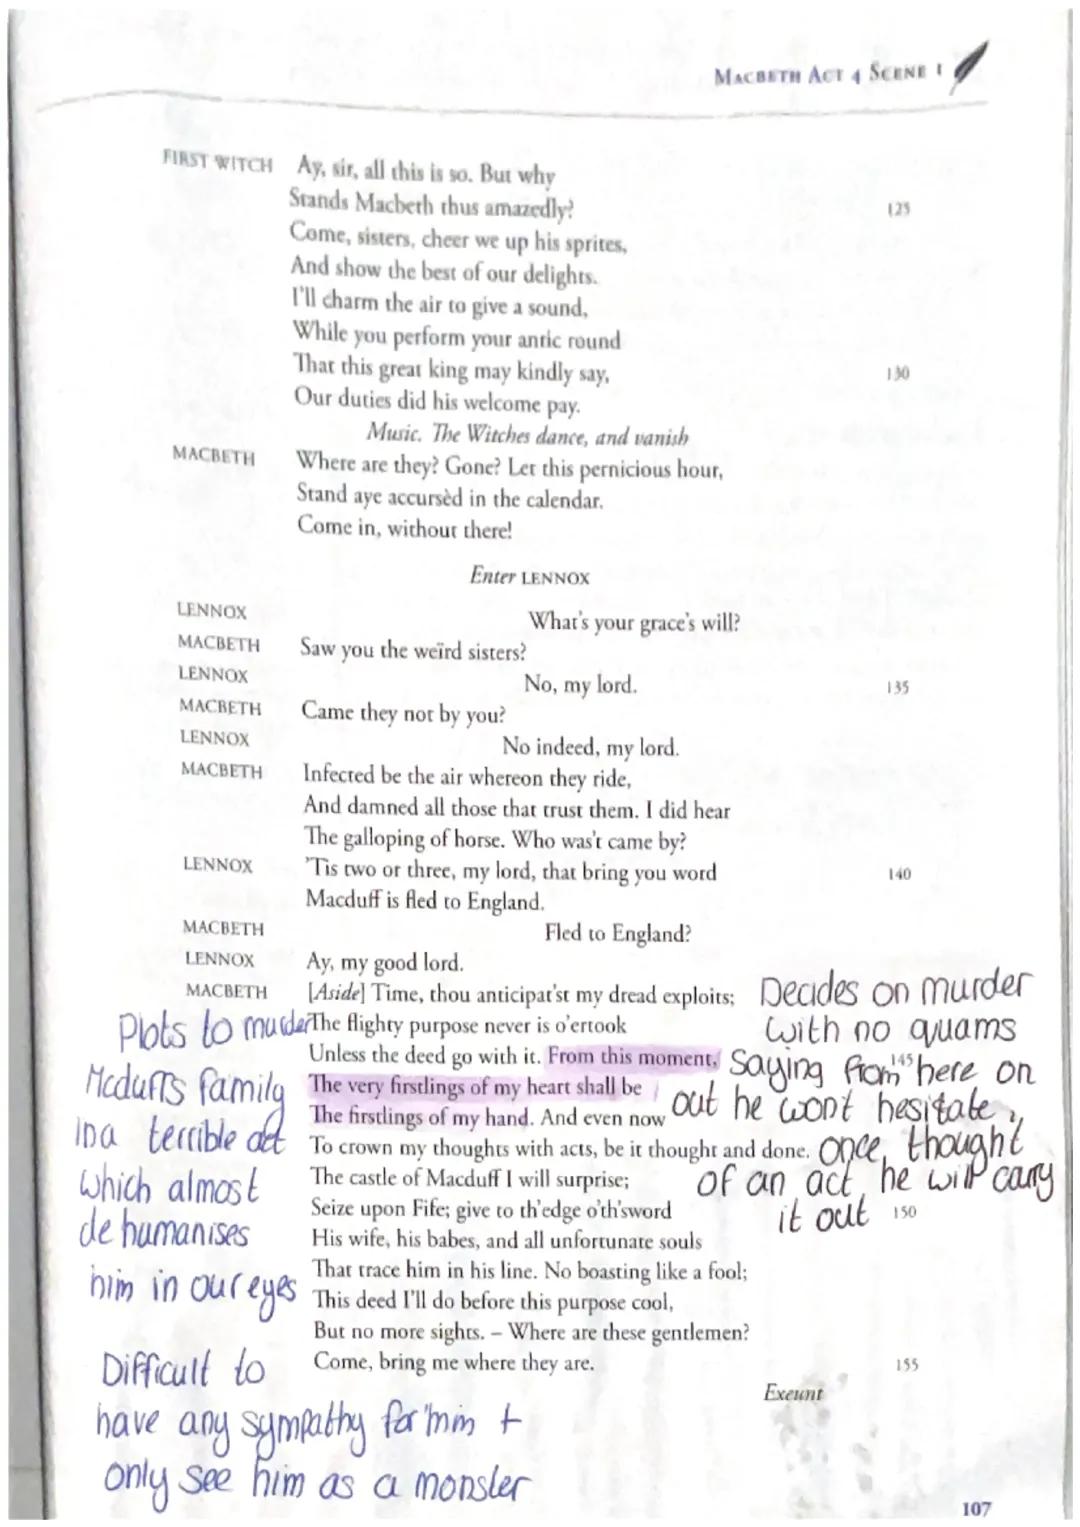 MACBETH ACT 4 SCENE 1
FIRST WITCH Ay, sir, all this is so. But why
Stands Macbeth thus amazedly? 125
Come, sisters, cheer we up his sprites,
And show the best of our delights.
I'll charm the air to give a sound,
While you perform your antic round
That this great king may kindly say, 130
Our duties did his welcome pay.
Music. The Witches dance, and vanish
MACBETH Where are they? Gone? Let this pernicious hour,
Stand aye accursèd in the calendar.
Come in, without there!
Enter LENNOX
LENNOX What's your grace's will?
MACBETH Saw you the weïrd sisters?
LENNOX No, my lord. 135
MACBETH Came they not by you?
LENNOX No indeed, my lord.
MACBETH Infected be the air whereon they ride,
And damned all those that trust them. I did hear
The galloping of horse. Who was't came by?
LENNOX 'Tis two or three, my lord, that bring you word 140
Macduff is fled to England.
MACBETH Fled to England?
LENNOX Ay, my good lord.
MACBETH [Aside] Time, thou anticipat'st my dread exploits;
The flighty purpose never is o'ertook
Unless the deed go with it. From this moment, 145
The very firstlings of my heart shall be
The firstlings of my hand. And even now
To crown my thoughts with acts, be it thought and done.
The castle of Macduff I will surprise;
Seize upon Fife; give to th'edge o'th'sword 150
His wife, his babes, and all unfortunate souls
That trace him in his line. No boasting like a fool;
This deed I'll do before this purpose cool,
But no more sights. – Where are these gentlemen?
Come, bring me where they are. 155
Exeunt
Decides on murder
with no quams
Saying from here on
out he wont hesitate,
once thought
of an act, he will carry
it out
Plots to murder
Mcduffs family
in a terrible act
which almost
dehumanises
him in our eyes
Difficult to
have any sympathy for him +
only see him as a monster
107